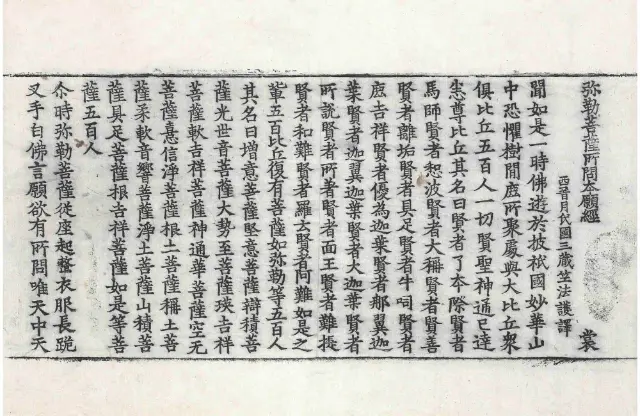 弥勒菩薩所問本願經 裳
西晉月氏國三藏竺法護譯
聞如是一時佛遊於披祇國妙華山
中恐懼樹間鹿所聚處與大比丘衆
俱比丘五百人一切賢聖神通已達
悉尊比丘其名曰賢者了本際賢者
馬師賢者恕波賢者大稱賢者賢善
賢者離垢賢者具足賢者牛呞賢者
鹿吉祥賢者優為迦葉賢者那翼迦
葉賢者迦翼迦葉賢者大迦葉賢者
所説賢者所著賢者面王賢者難提
賢者和難賢者羅云賢者阿難如是之
輩五百比丘復有菩薩如弥勒等五百人
其名曰增意菩薩堅意菩薩辯積菩
薩光世音菩薩大勢至菩薩瑛吉祥
菩薩軟吉祥菩薩神通華菩薩空无
菩薩憙信淨菩薩根土菩薩稱土菩
薩柔軟音響菩薩淨土菩薩山積菩
薩具足菩薩根吉祥菩薩如是等菩
薩五百人
尒時弥勒菩薩從座起整衣服長跪
叉手白佛言願欲有所問唯天中天